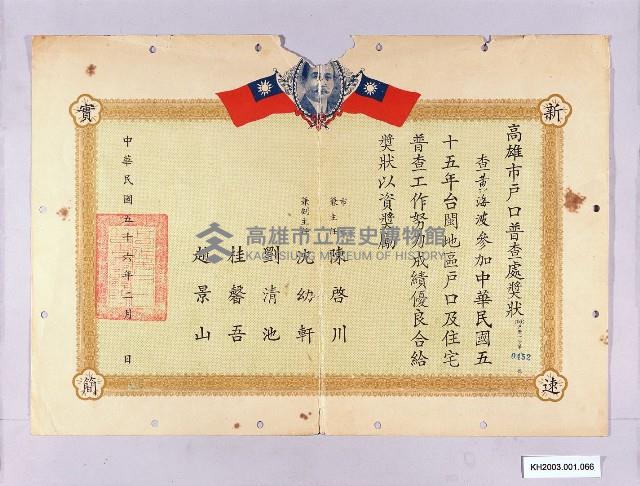 新
速
實
簡
高雄市戶口普查處獎狀
0452
查黃海波參加中華民國五
十五年台閩地區戶口及住宅
普查工作努力成績優良合給
獎狀以資獎勵
市
兼主任 陳啓川
兼副主任 沈幼軒
劉清池
桂馨吾
趙景山
中華民國五十六年二月 日
高雄市立歷史博物館
KAOHSIUNG MUSEUM OF HISTORY
KH2003.001.066